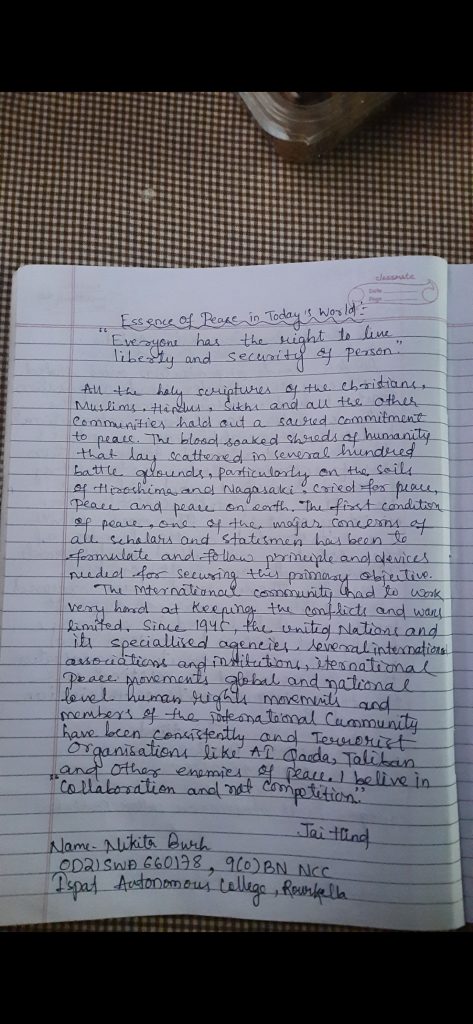 classmate
Date
Page
Essence of Peace in Today's World :-
"Everyone has the right to live
liberty and security of person."
All the holy scriptures of the christians,
Muslims, Hindus, Sikhs and all the other
Communities hald out a sacred commitment
to peace. The blood soaked shreds of humanity
that lay scattered in several hundred
battle grounds, particularly on the soils
of Hiroshima and Nagasaki, Cried for peace,
Peace and peace on earth. The first condition
of peace, one of the majar Concerns of
all scholars and statesmen has been to
formulate and follaw principle and devices
needed for securing this primary objective.
The International community had to work
very hard at Keeping the conflicts and wars
limited. Since 1945, the united Nations and
its speciallised agencies, several international
associations and institutions, iternational
Peace movements global and national
level human rights movements and
members of the international Cummunity
have been consistently and Terrorist
Organisations like Al Qaeda, Taliban
and other enemies of peace. I belive in
"Collaboration and not Competition."
Jai Hind
Name- Nikita Burh
OD21SWA660178, 9(O)BN NCC
Ispat Autonomous College, Rourkella